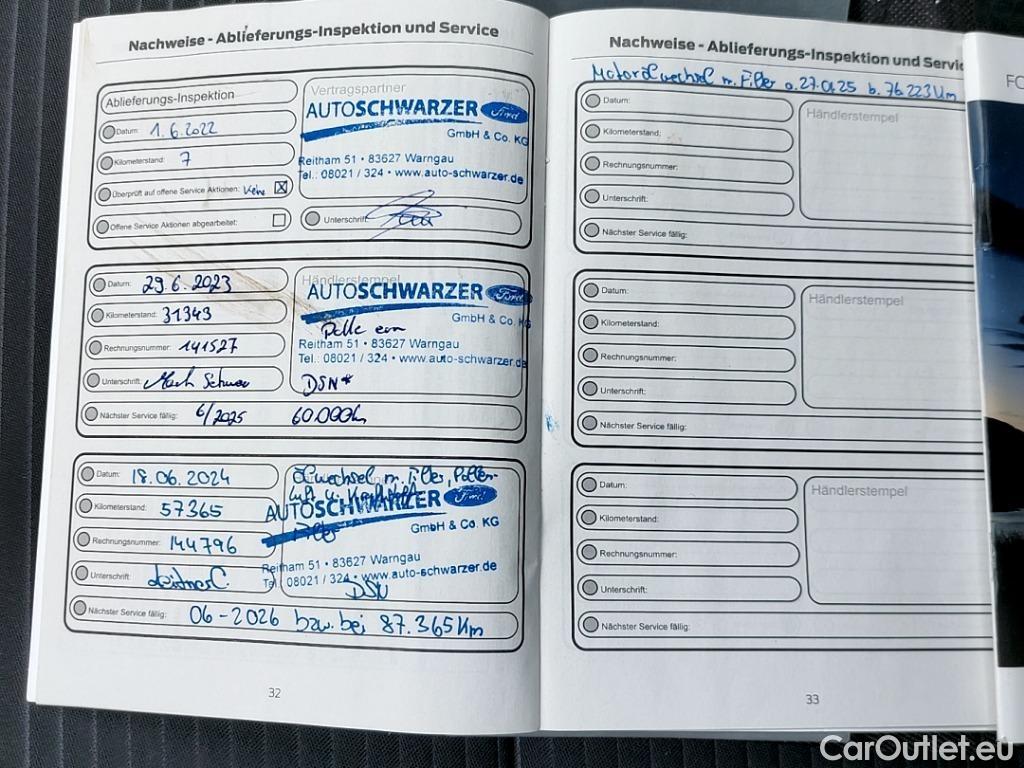 Nachweise - Ablieferungs-Inspektion und Service
Ablieferungs-Inspektion
Datum: 1.6.2022
Kilometerstand: 7
Überprüft auf offene Service Aktionen: Keine
Offene Service Aktionen abgearbeitet:
Vertragspartner
AUTOSCHWARZER Ford
GmbH & Co. KG
Reitham 51 • 83627 Warngau
Tel.: 08021 / 324 • www.auto-schwarzer.de
Unterschrift:
Datum: 29.6.2023
Kilometerstand: 31343
Rechnungsnummer: 141527
Unterschrift:
Händlerstempel
AUTOSCHWARZER Ford
GmbH & Co. KG
Reitham 51 • 83627 Warngau
Tel.: 08021 / 324 • www.auto-schwarzer.de
DSN*
Nächster Service fällig: 6/2025 60.000km
Datum: 18.06.2024
Kilometerstand: 57365
Rechnungsnummer: 144796
Unterschrift:
Ölwechsel m. Filter, Pollen-
Luft u. Kraftstoff
AUTOSCHWARZER Ford
Filter
GmbH & Co. KG
Reitham 51 • 83627 Warngau
Tel. 08021 / 324 • www.auto-schwarzer.de
DSN
Nächster Service fällig: 06-2026 bzw. bei 87.365Km
32
Nachweise - Ablieferungs-Inspektion und Servic
Motorölwechsel m. Filter a. 27.01.25 b. 76223Km
Datum:
Kilometerstand:
Rechnungsnummer:
Unterschrift:
Nächster Service fällig:
Händlerstempel
Datum:
Kilometerstand:
Rechnungsnummer:
Unterschrift:
Nächster Service fällig:
Händlerstempel
Datum:
Kilometerstand:
Rechnungsnummer:
Unterschrift:
Nächster Service fällig:
Händlerstempel
33
FO
CarOutlet.eu